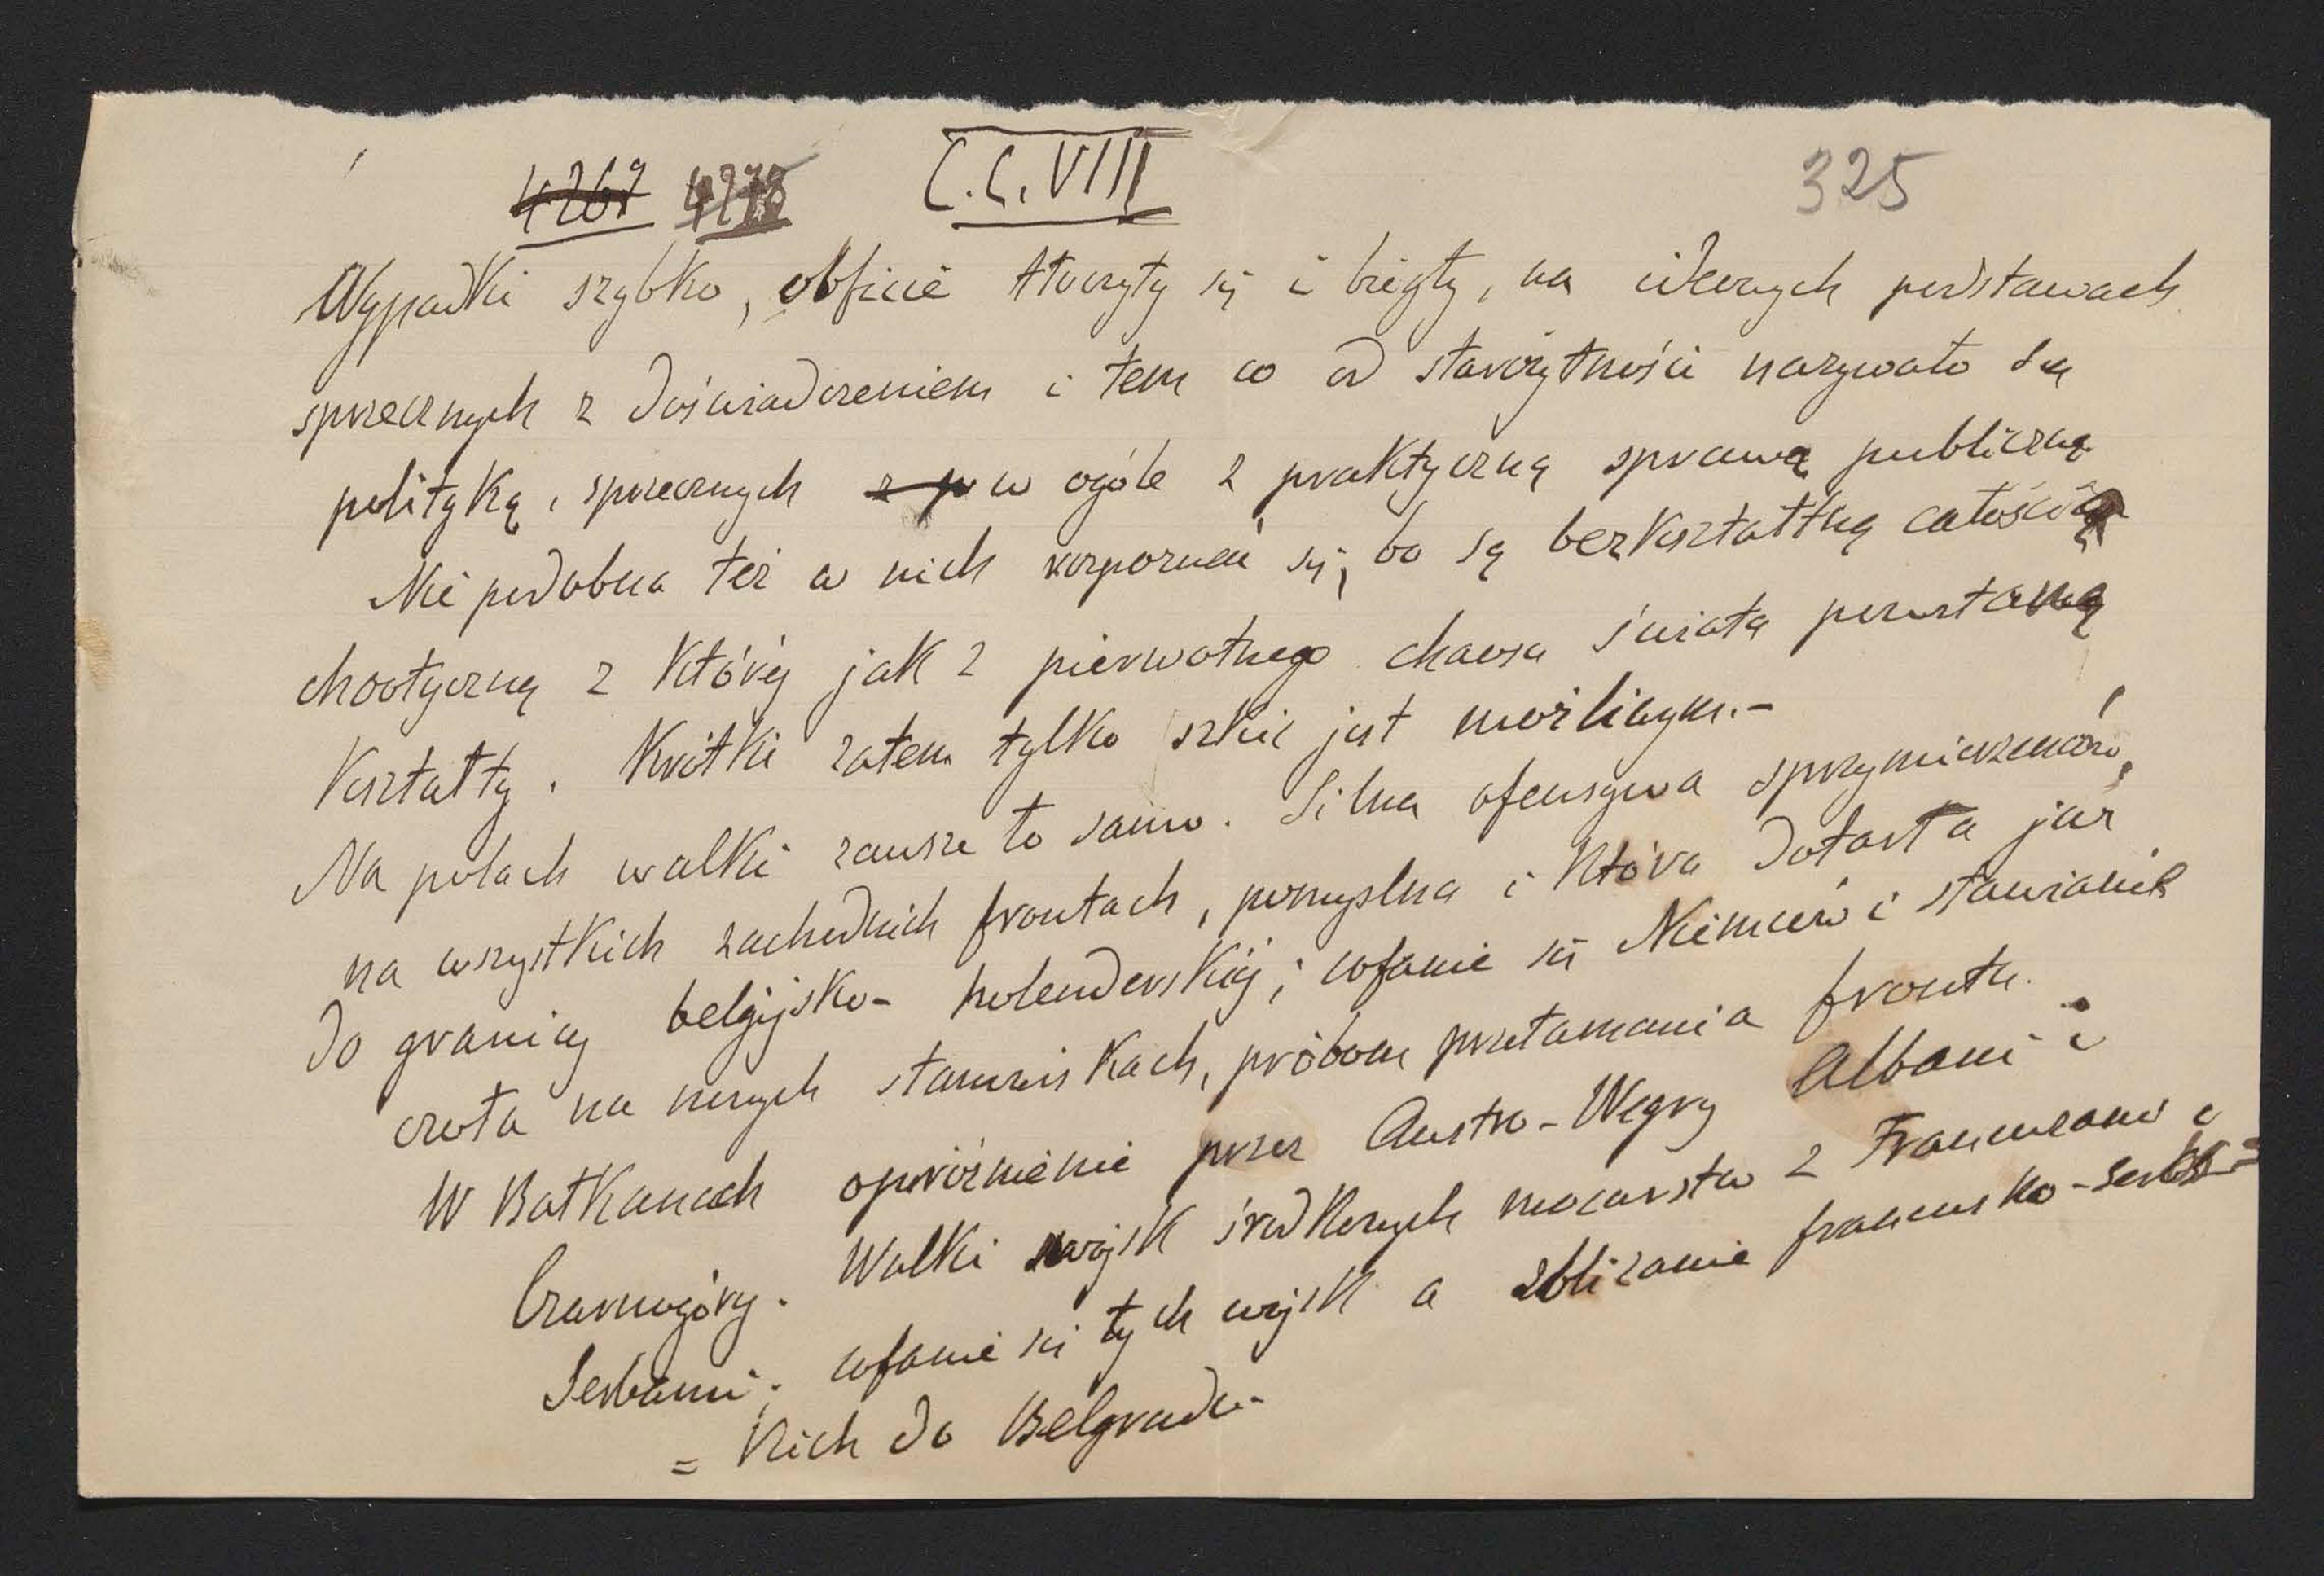 4267 4278 C.C.VIII 325
Wypadki szybko, obficie tłoczyły się i biegły, na ideowych podstawach
sprzecznych z doświadczeniem i tem co od starożytności nazywało się
polityką, sprzecznych z p w ogóle z praktyczną sprawą publiczną
Nie podobna też w nich rozpoznać się, bo są bezkształtną całością
chaotyczną z któréj jak z pierwotnego chaosu świata powstaną
Kształty. Krótki zatem tylko szkic jest możliwym.-
Na polach walki zawsze to samo. Silna ofensywa sprzymierzeńców,
na wszystkich zachodnich frontach, pomyślna i która dotarła już
do granicy belgijsko- holenderskiéj; cofanie się Niemców i stawianie
czoła na nowych stanowiskach, próbom przełamania frontu.
W Bałkanach opróżnienie przez Austro-Węgry Albanii i
Czarnogóry. Walki wojsk środkowych mocarstw z Francuzami i
Serbami; cofanie się tych wojsk a zbliżanie francusko-serbs=
= kich do Belgradu-